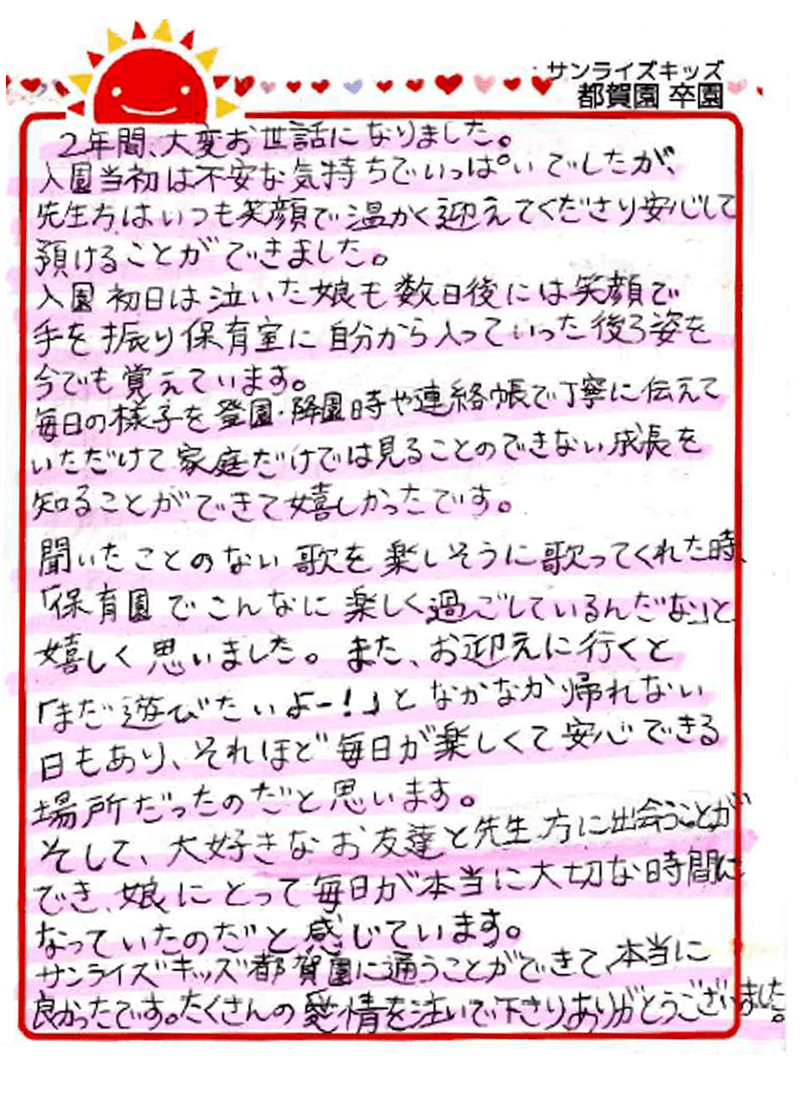 サンライズキッズ
都賀園 卒園
2年間、大変お世話になりました。
入園当初は不安な気持ちでいっぱいでしたが、
先生方はいつも笑顔で温かく迎えてくださり安心して
預けることができました。
入園初日は泣いた娘も数日後には笑顔で
手を振り保育室に自分から入っていった後ろ姿を
今でも覚えています。
毎日の様子を登園・降園時や連絡帳で丁寧に伝えて
いただけて家庭だけでは見ることのできない成長を
知ることができて嬉しかったです。
聞いたことのない歌を楽しそうに歌ってくれた時、
「保育園でこんなに楽しく過ごしているんだな」と
嬉しく思いました。また、お迎えに行くと
「まだ遊びたいよー!」となかなか帰れない
日もあり、それほど毎日が楽しくて安心できる
場所だったのだと思います。
そして、大好きなお友達と先生方に出会うことが
でき、娘にとって毎日が本当に大切な時間に
なっていたのだと感じています。
サンライズキッズ都賀園に通うことができて、本当に
良かったです。たくさんの愛情を注いで下さりありがとうございました。